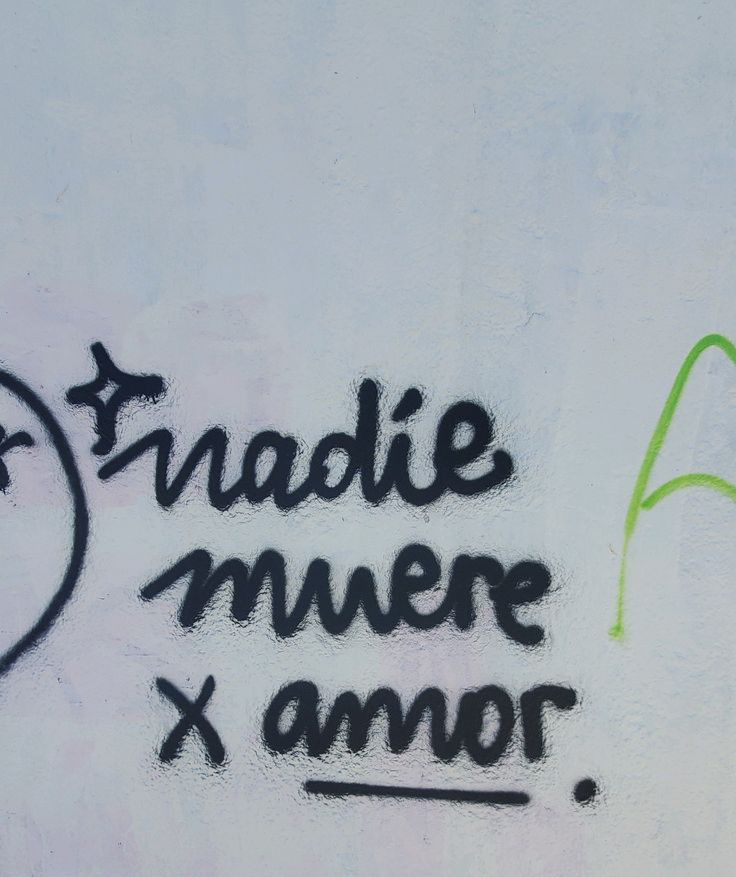 nadie
muere
x amor.